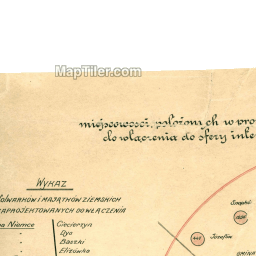 MapTiler.com
miejscowości, położonych w pro
do włączenia do sfery inte
WYKAZ
OLWARKÓW I MAJĄTKÓW ZIEMSKICH
APROJEKTOWANYCH DO WŁĄCZENIA
na Niemce Ciecierzyn
" Dys
" Baszki
" Elizówka
Józefów
GMINA